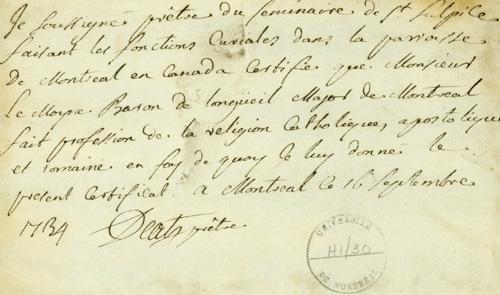 Je soussigné prêtre du seminaire de St. Sulpice
faisant les fonctions Curiales dans la parroisse
de Montreal en Canada Certifie que Monsieur
le Moyne Baron de longüeil Major de Montreal
fait profession de la religion Catholique, apostolique
et romaine en foy de quoy Je luy donne le
present Certificat. a Montreal ce 16 Septembre
1734 Deat prêtre
UNIVERSITÉ
H1/30
DE MONTREAL